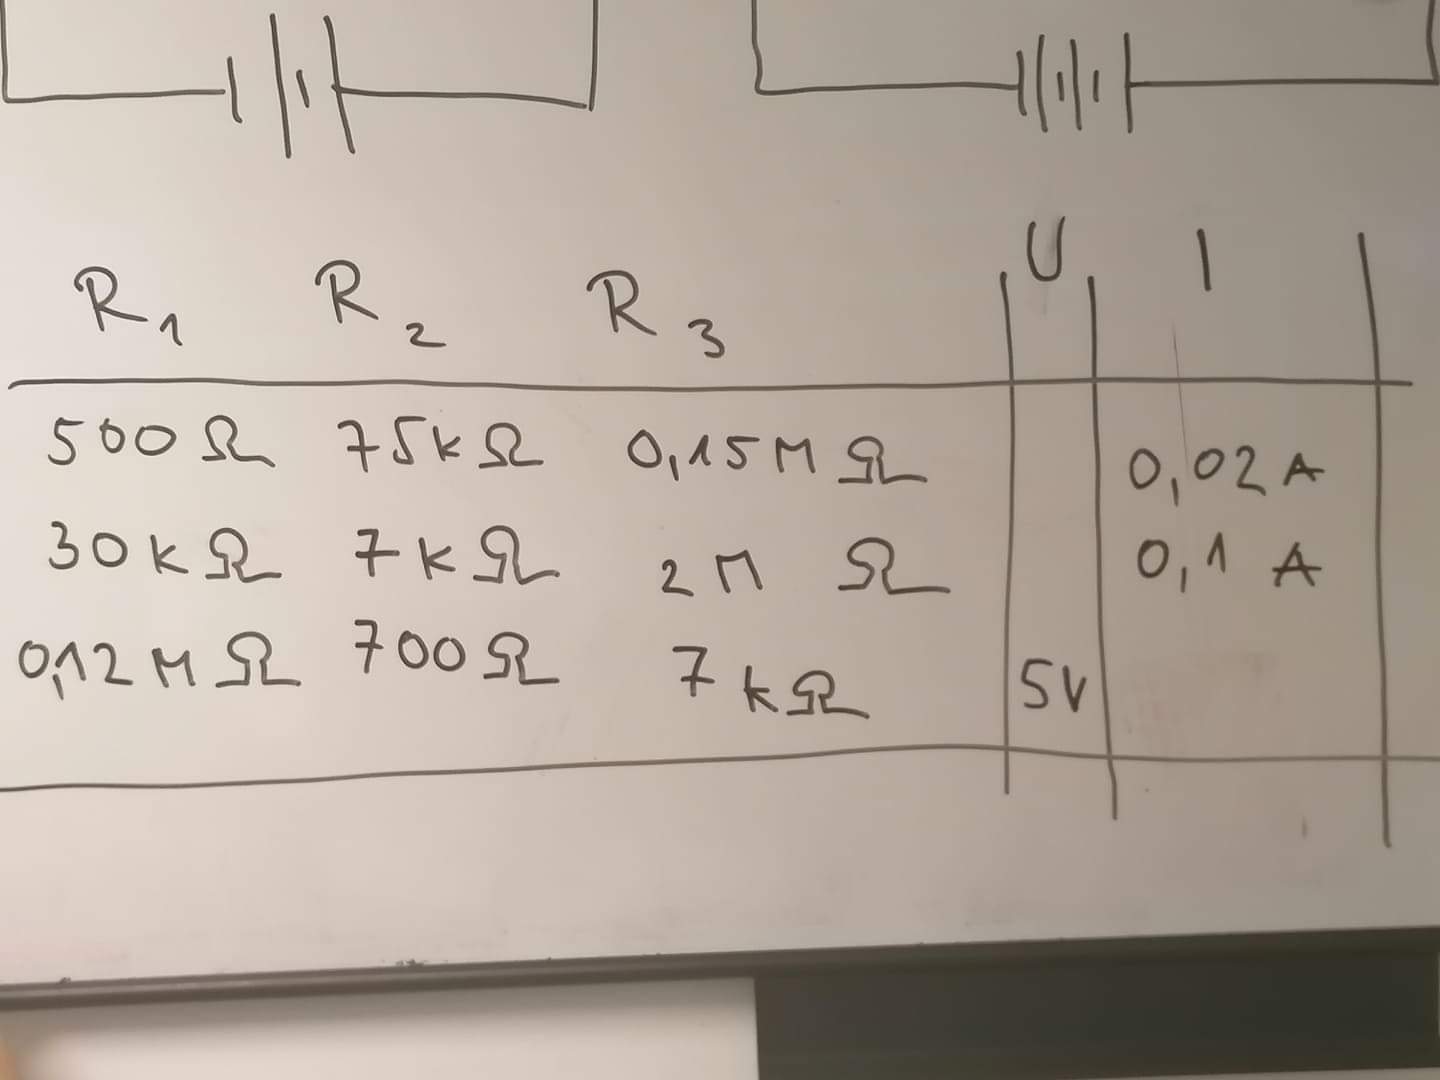 R1 R2 R3 U I
500 Ω 75kΩ 0,15M Ω 0,02 A
30 k Ω 7 k Ω 2 M Ω 0,1 A
0,12 M Ω 700 Ω 7 kΩ 5V